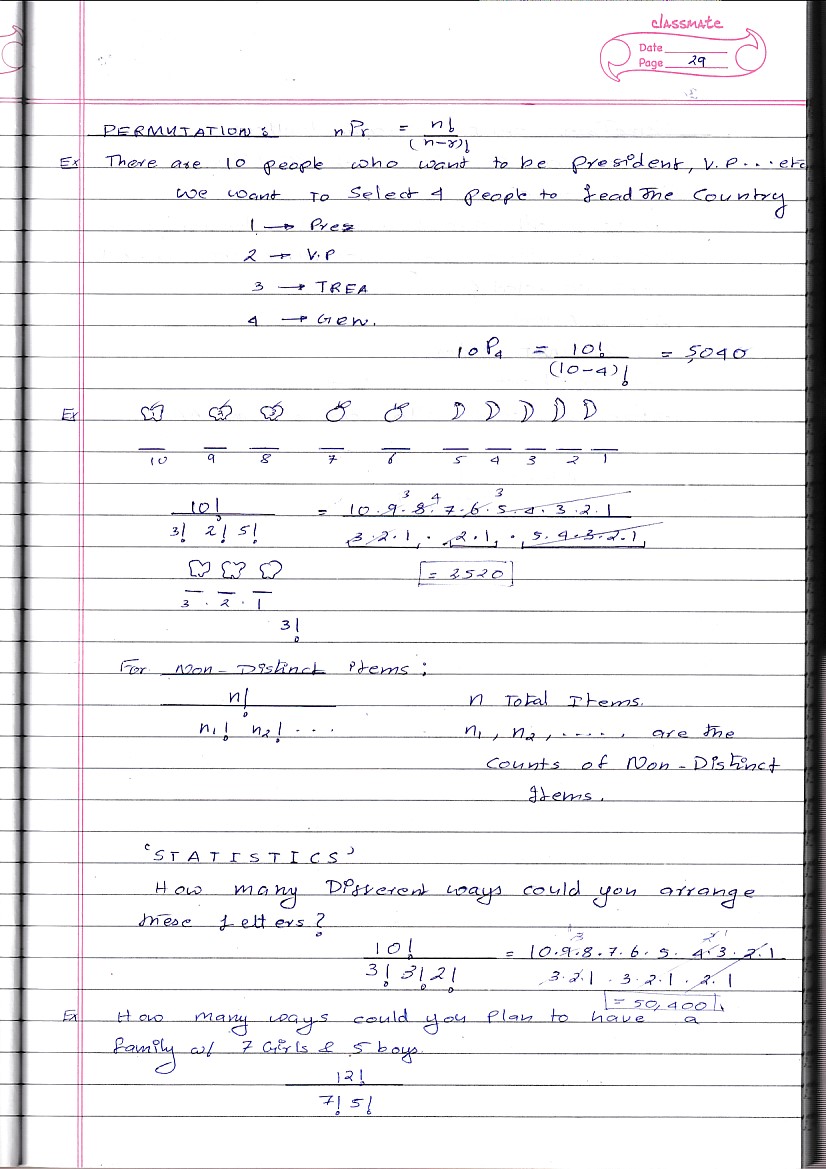 classmate
Date
Page 29
PERMUTATION : nPr = n! / (n-r)!
Ex There are 10 people who want to be president, V.P... etc
we want To Select 4 People to Lead the Country
1 → Prez
2 → V.P
3 → TREA
4 → Gen.
10P4 = 10! / (10-4)! = 5040
Ex
10 9 8 7 6 5 4 3 2 1
10! / 3! 2! 5! = 10.9.8.7.6.5.4.3.2.1 / 3.2.1 . 2.1 . 5.4.3.2.1
3 4 3
= 2520
3 . 2 . 1
3!
For Non-Distinct Items ;
n! / n1! n2! ...
n Total Items.
n1, n2, ..... are the
Counts of Non-Distinct
Items.
'STATISTICS'
How many Different ways could you arrange
these letters?
10! / 3! 3! 2! = 10.9.8.7.6.5.4.3.2.1 / 3.2.1 . 3.2.1 . 2.1
= 50,400
Ex How many ways could you Plan to have a
family w/ 7 Girls & 5 boys.
12! / 7! 5!